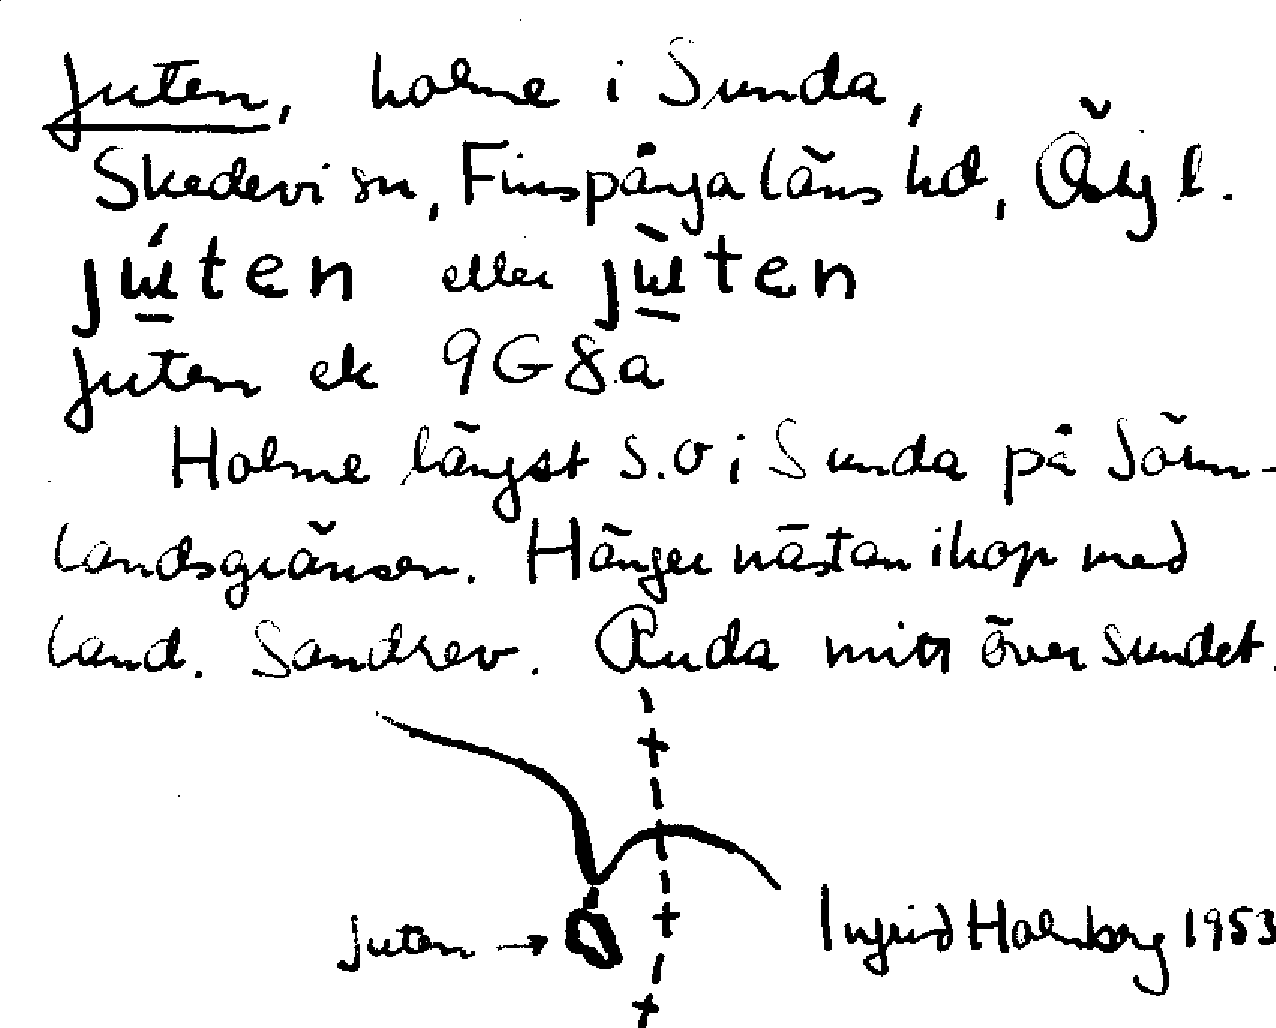 Juten, holme i Sunda,
Skedevi sn, Finspånga läns hd, Östg l.
jú̱ten eller jù̱ten
Juten ek 9G8a
Holme längst S.O i Sunda på Sörm-
landsgränsen. Hänger nästan ihop med
land. Sandrev. Runda mitt över sundet.
Juten →
Ingrid Holmberg 1953